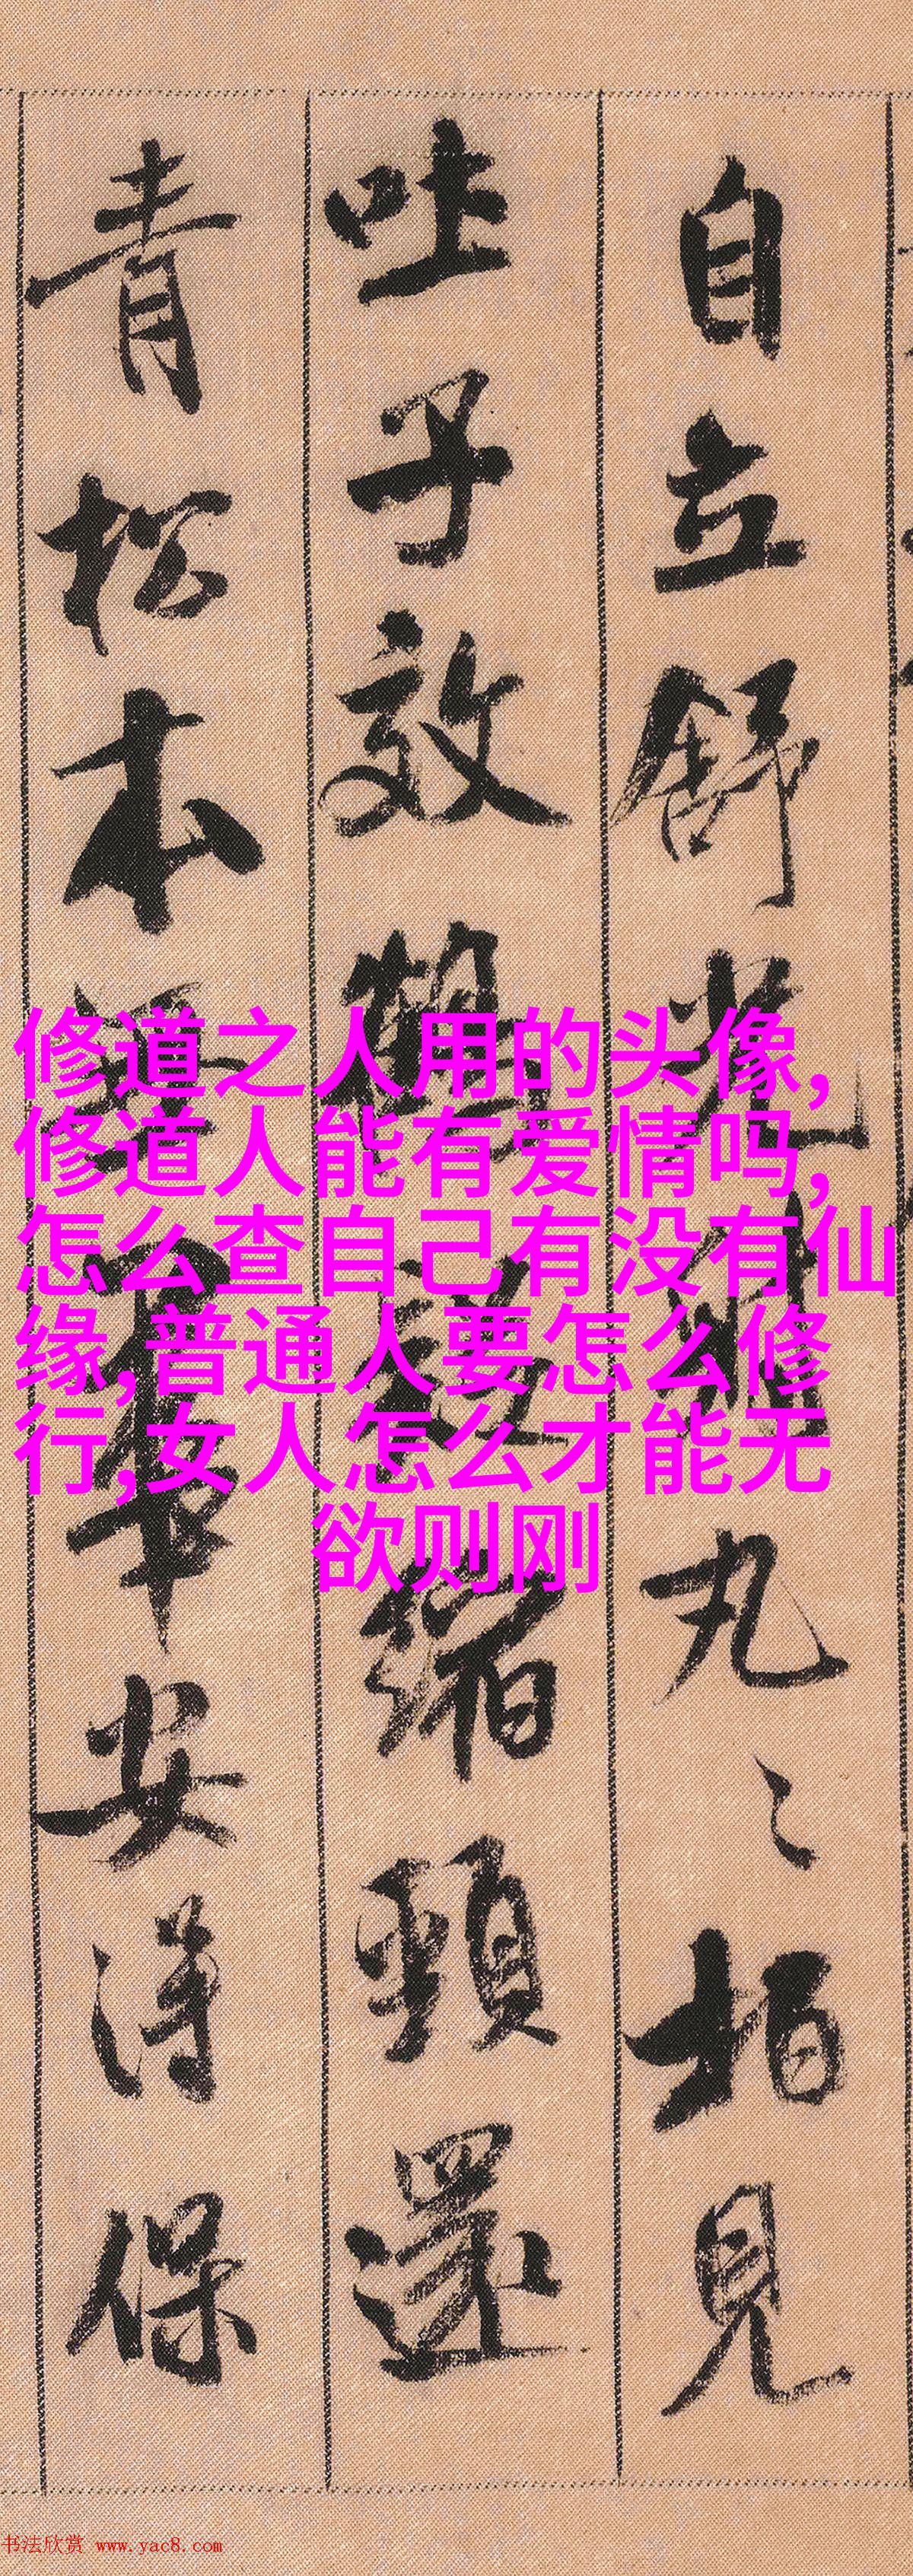 自立舒光照丸〻柏見
吐子效鶴設縮頸還
青松本
安得保
修道之人用的头像,
修道人能有爱情吗,
怎么查自己有没有仙
缘,普通人要怎么修
行,女人怎么才能无
欲则刚
书法欣赏 www.yac8.com